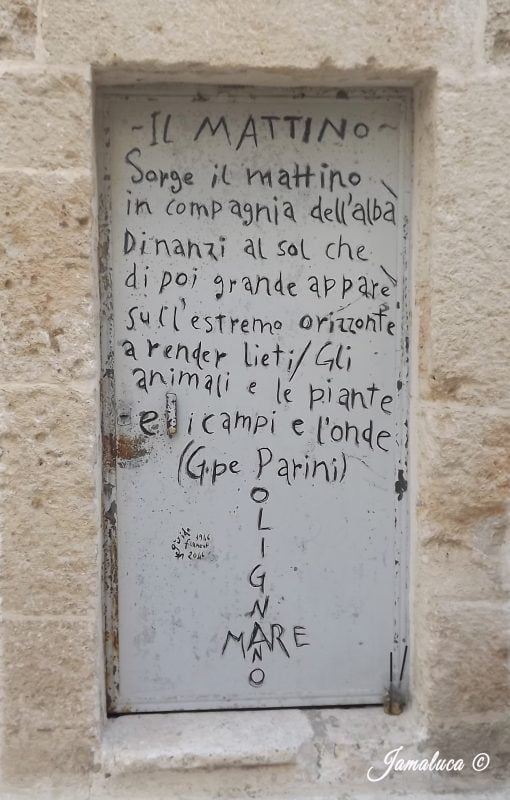 ~IL MATTINO~
Sorge il mattino
in compagnia dell'alba
Dinanzi al sol che
di poi grande appare
sull'estremo orizzonte
a render lieti/Gli
animali e le piante
e i campi e l'onde
(G.pe Parini)
OLIGNANO
MARE
1946
2046
Jamaluca ©